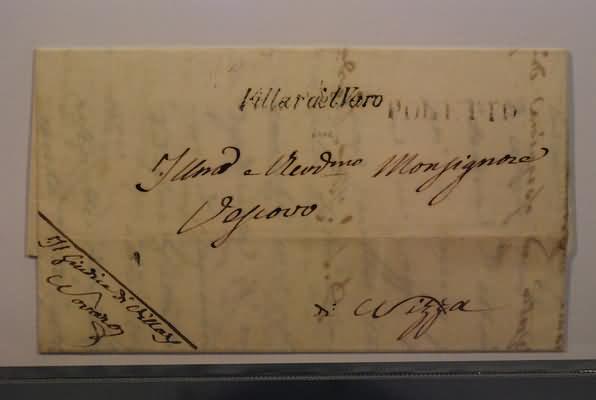 Villar del Varo
PUGETTO
Illmo e Revdmo Monsignore
Vescovo
di Nizza
Il Giudice di Villar